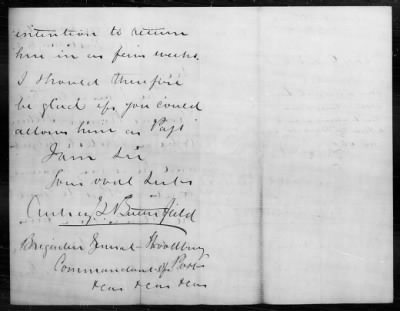 intention to return
here in a few weeks.
I should therefore
be glad if you could
allow him a Pass
I am Sir
Your obdt Servt
Brigadier General Woodbury
Commandant of Post